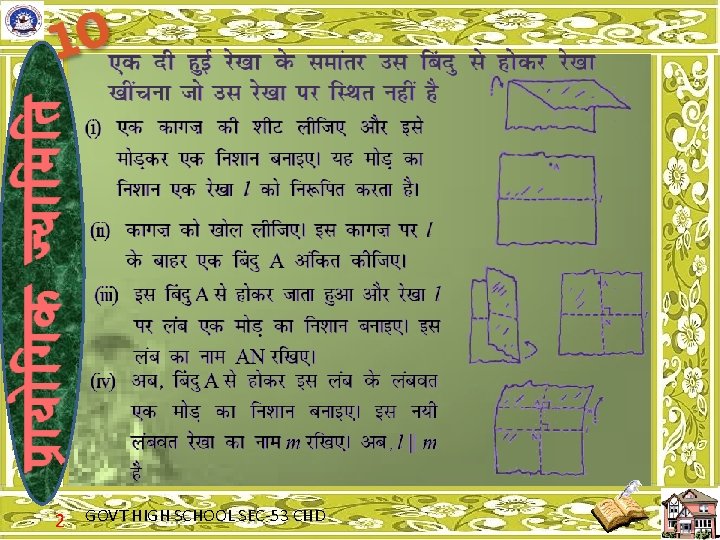 10
प्रायोगिक ज्यामिति
एक दी हुई रेखा के समांतर उस बिंदु से होकर रेखा
खींचना जो उस रेखा पर स्थित नहीं है
(i) एक कागज़ की शीट लीजिए और इसे
मोड़कर एक निशान बनाइए। यह मोड़ का
निशान एक रेखा l को निरूपित करता है।
(ii) कागज़ को खोल लीजिए। इस कागज़ पर l
के बाहर एक बिंदु A अंकित कीजिए।
(iii) इस बिंदु A से होकर जाता हुआ और रेखा l
पर लंब एक मोड़ का निशान बनाइए। इस
लंब का नाम AN रखिए।
(iv) अब, बिंदु A से होकर इस लंब के लंबवत
एक मोड़ का निशान बनाइए। इस नयी
लंबवत रेखा का नाम m रखिए। अब, l || m
है
A
l
A
N
l
N
2 GOVT HIGH SCHOOL SEC-53 CHD